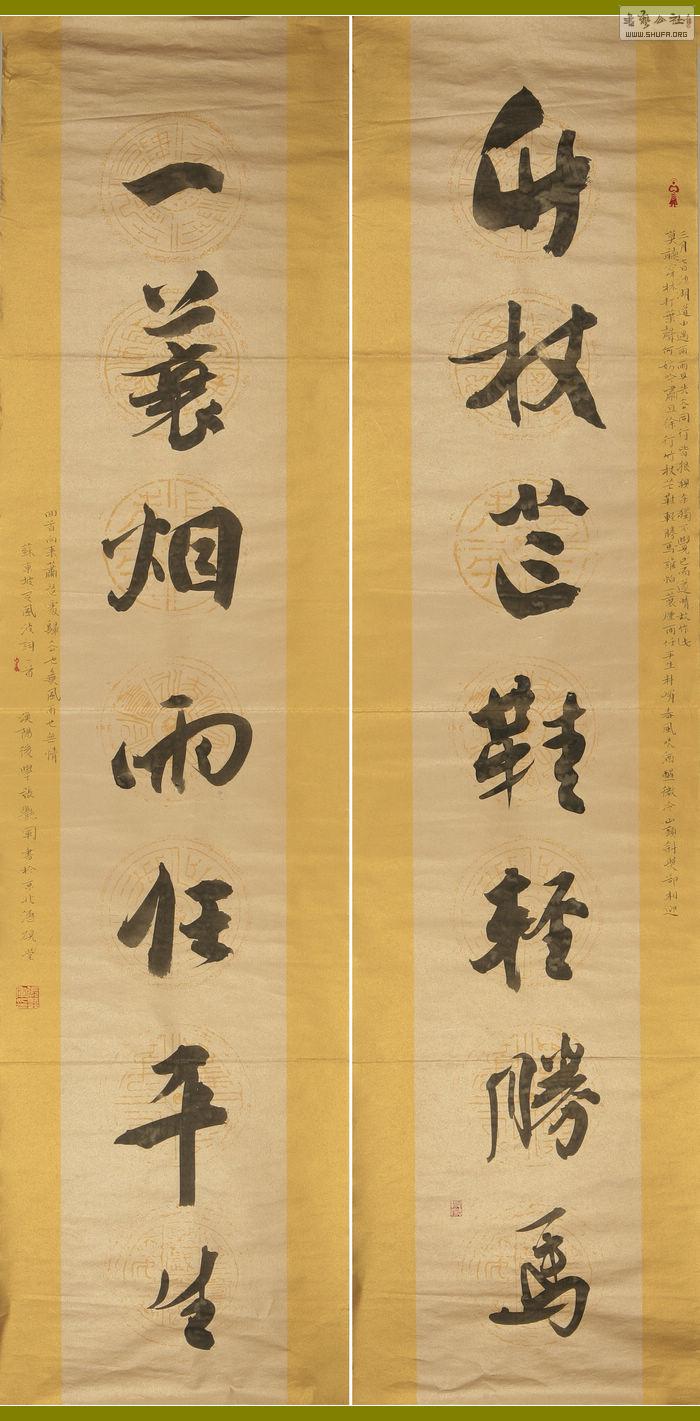 竹杖芒鞋輕勝馬
一蓑烟雨任平生
三月七日沙湖道中遇雨雨具先去同行皆狼狽余獨不覺已而遂晴故作此
莫聽穿林打葉聲何妨吟嘯且徐行竹杖芒鞋輕勝馬誰怕一蓑煙雨任平生料峭春風吹酒醒微冷山頭斜照却相迎
回首向來蕭瑟處歸去也無風雨也無晴
蘇東坡定風波詞一首
漢陽後學張艷軍書於京北
WWW.SHUFA.ORG